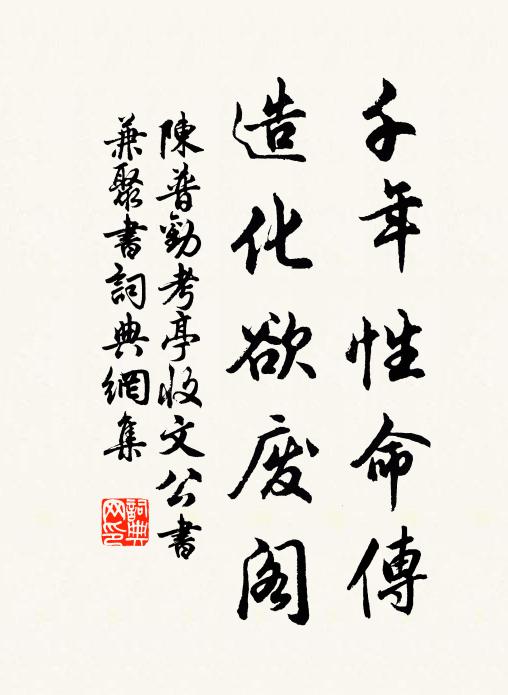 千年性命傳
造化欲废阁
陳普勸考亭收文公書
兼聚書詞典網集
詞典网印